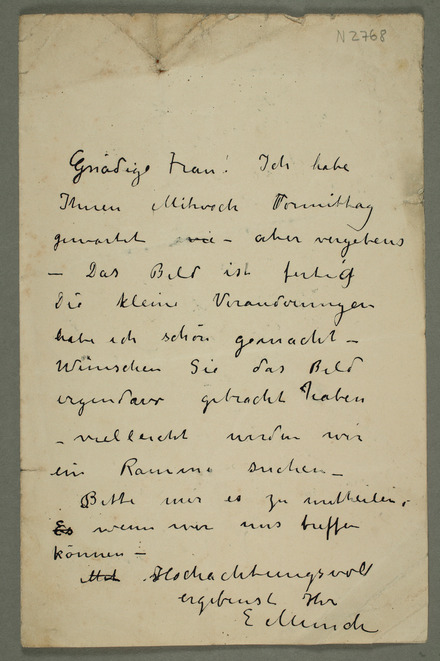 N 2768
Gnädige Frau! Ich habe
Ihnen Mitwoch Formittag
gewartet – aber vergebens
– Das Bild ist fertig
Die kleine Veranderungen
habe ich schön gemacht –
Wünschen Sie das Bild
gebracht haben
– vielleicht werden wir
ein Ramme suchen –
Bitte mir es zu mittheilen,
Es wenn wir uns treffen
können –
Mit Hochachtungsvoll
ergebenst Ihr
E Munch